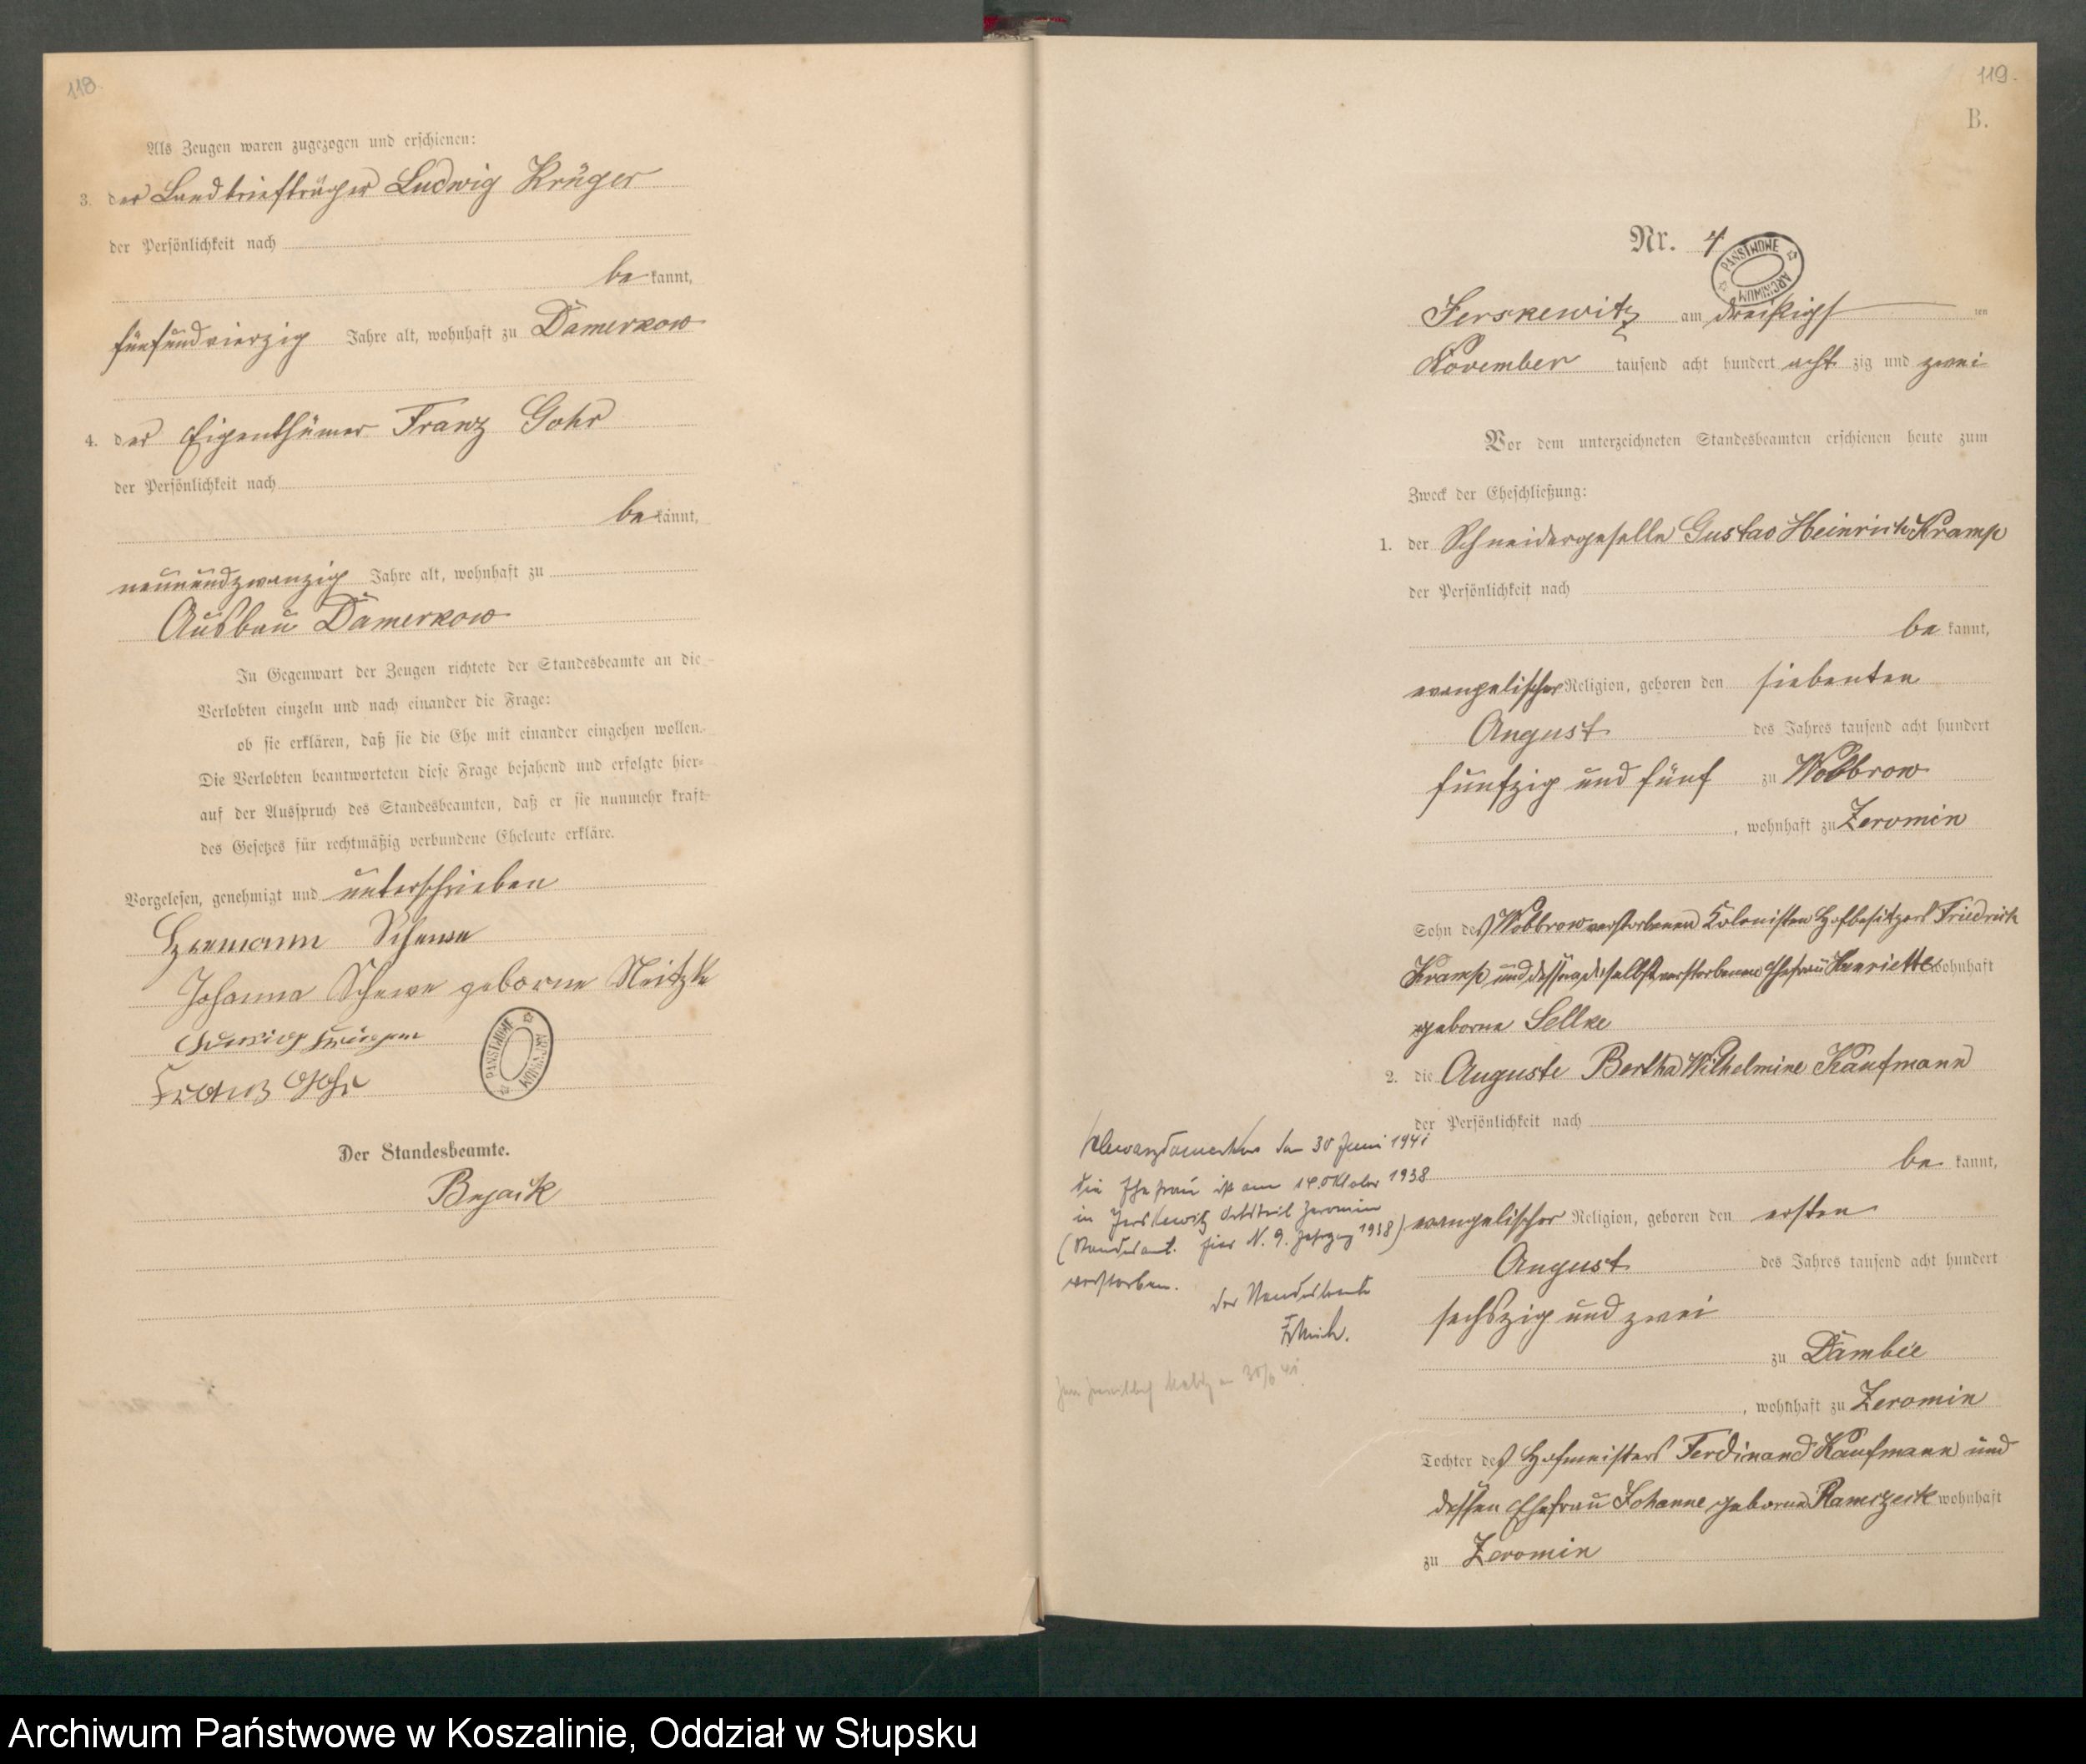 118.
Als Zeugen waren zugezogen und erschienen:
3. der Landbriefträger Ludwig Krüger
der Persönlichkeit nach
be kannt,
fünfundvierzig Jahre alt, wohnhaft zu Damerkow
4. der Eigenthümer Franz Gohr
der Persönlichkeit nach
be kannt,
neunundzwanzig Jahre alt, wohnhaft zu
Ausbau Damerkow
In Gegenwart der Zeugen richtete der Standesbeamte an die
Verlobten einzeln und nach einander die Frage:
ob sie erklären, daß sie die Ehe mit einander eingehen wollen.
Die Verlobten beantworteten diese Frage bejahend und erfolgte hier-
auf der Ausspruch des Standesbeamten, daß er sie nunmehr kraft
des Gesetzes für rechtmäßig verbundene Eheleute erkläre.
Vorgelesen, genehmigt und unterschrieben
Hermann Schewe
Johanna Schewe geborne Neitzke
Ludwig Krüger
Franz Gohr
PAŃSTWOWE ARCHIWUM
Der Standesbeamte.
119.
B.
Nr. 4
PAŃSTWOWE ARCHIWUM
Jerskewitz am dreißigst ten
November tausend acht hundert acht zig und zwei
Vor dem unterzeichneten Standesbeamten erschienen heute zum
Zweck der Eheschließung:
1. der Schneidergeselle Gustav Heinrich Kramp
der Persönlichkeit nach
be kannt,
evangelischer Religion, geboren den siebenten
August des Jahres tausend acht hundert
fünfzig und fünf zu Wobbrow
, wohnhaft zu Zeromin
Sohn des Wobbrow verstorbenen Kolonisten Hofbesitzers Friedrich
Kramp und dessen daselbst verstorbenen Ehefrau Henriette wohnhaft
geborne Sellke
2. die Auguste Bertha Wilhelmine Kaufmann
der Persönlichkeit nach
den 30 Juni 1941
die Ehefrau ist am 14. Oktober 1938
be kannt,
in Jerskewitz Ortsteil Zeromin
(Standesamt hier N. 9. Jahrgang 1938)
evangelischer Religion, geboren den ersten
verstorben.
August des Jahres tausend acht hundert
Der Standesbeamte
sechszig und zwei
zu Dambee
, wohnhaft zu Zeromin
Tochter des Hofmeisters Ferdinand Kaufmann und
dessen Ehefrau Johanne geborne Ramczeck wohnhaft
zu Zeromin
Archiwum Państwowe w Koszalinie, Oddział w Słupsku